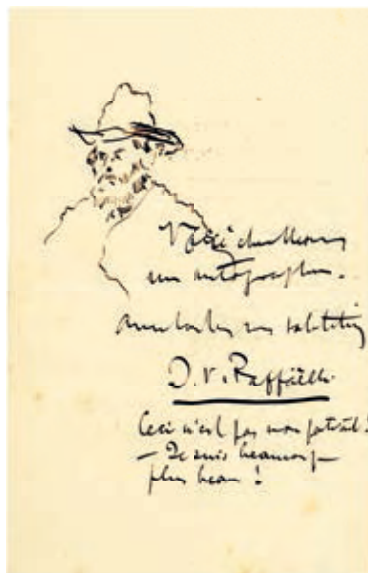 Voici cher Monsieur
un autographe.
avec toutes mes salutations
J. F. Raffaëlli
Ceci n'est pas mon portrait !
— Je suis beaucoup
plus beau !